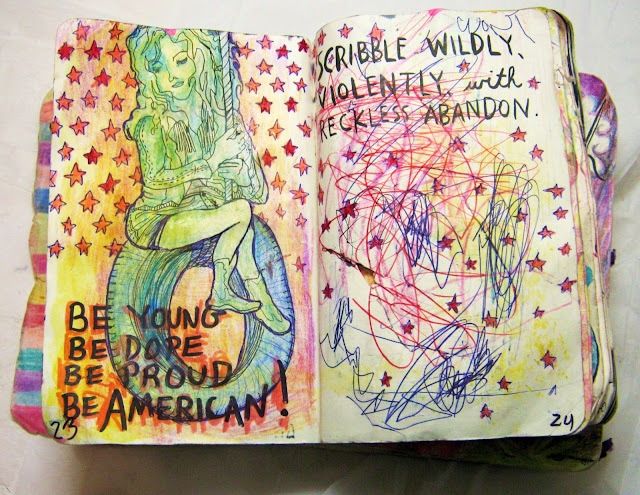 BE YOUNG
BE DOPE
BE PROUD
BE AMERICAN!
23
SCRIBBLE WILDLY,
VIOLENTLY, with
RECKLESS ABANDON.
24